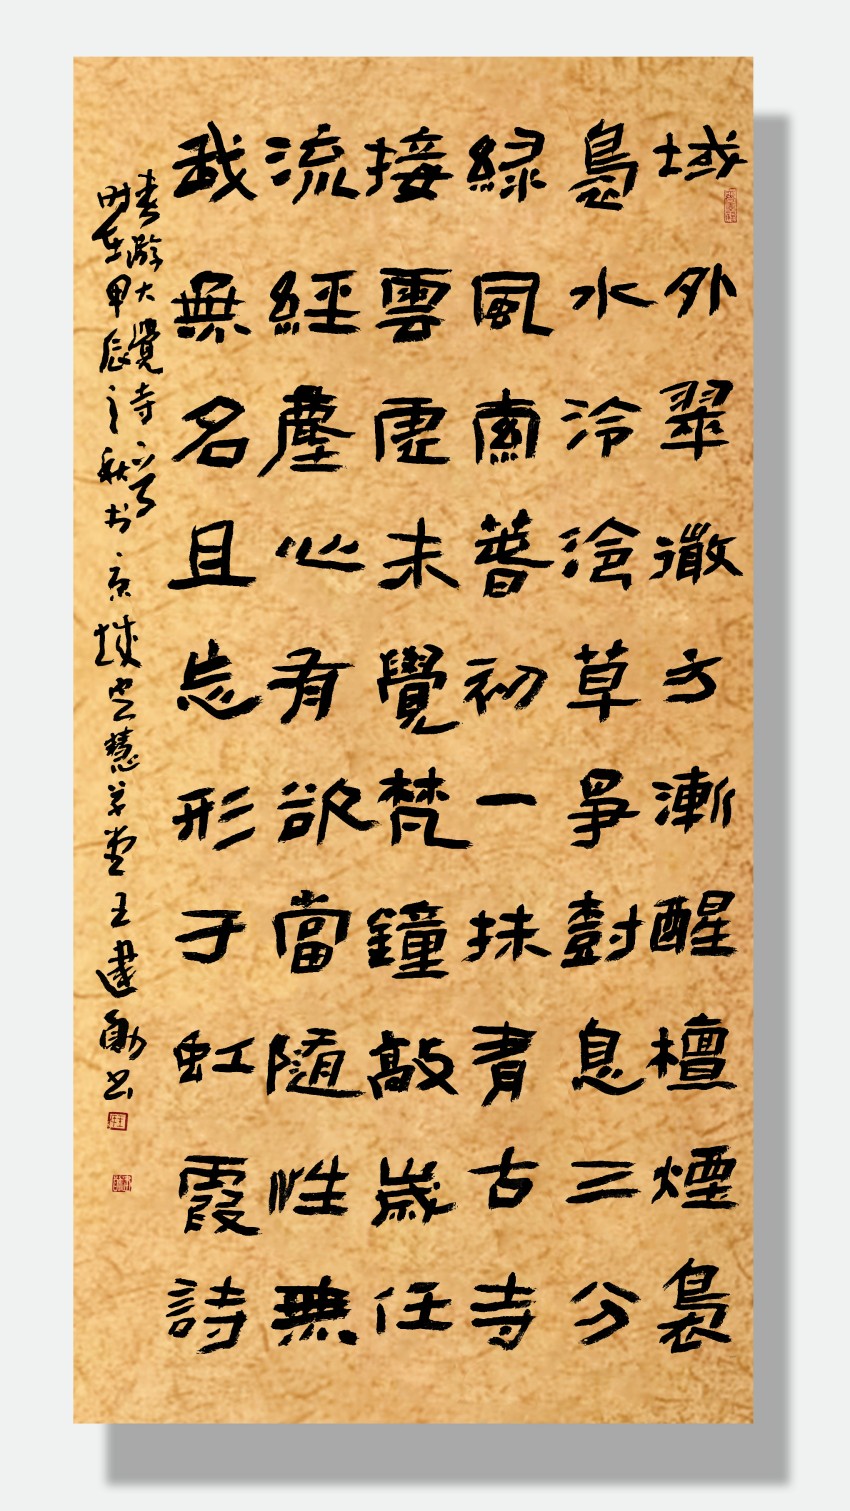 域外翠微方漸醒檀煙裊
裊水泠泠草爭尌息三分
綠風索初一抹青古寺
接雲虛未覺梵鐘敲歲任
流經塵心有欲當隨性無
我無名且忘形于虹霞詩
春游大覺詩一首
時在甲辰之秋书京城定慧草堂王建勛书